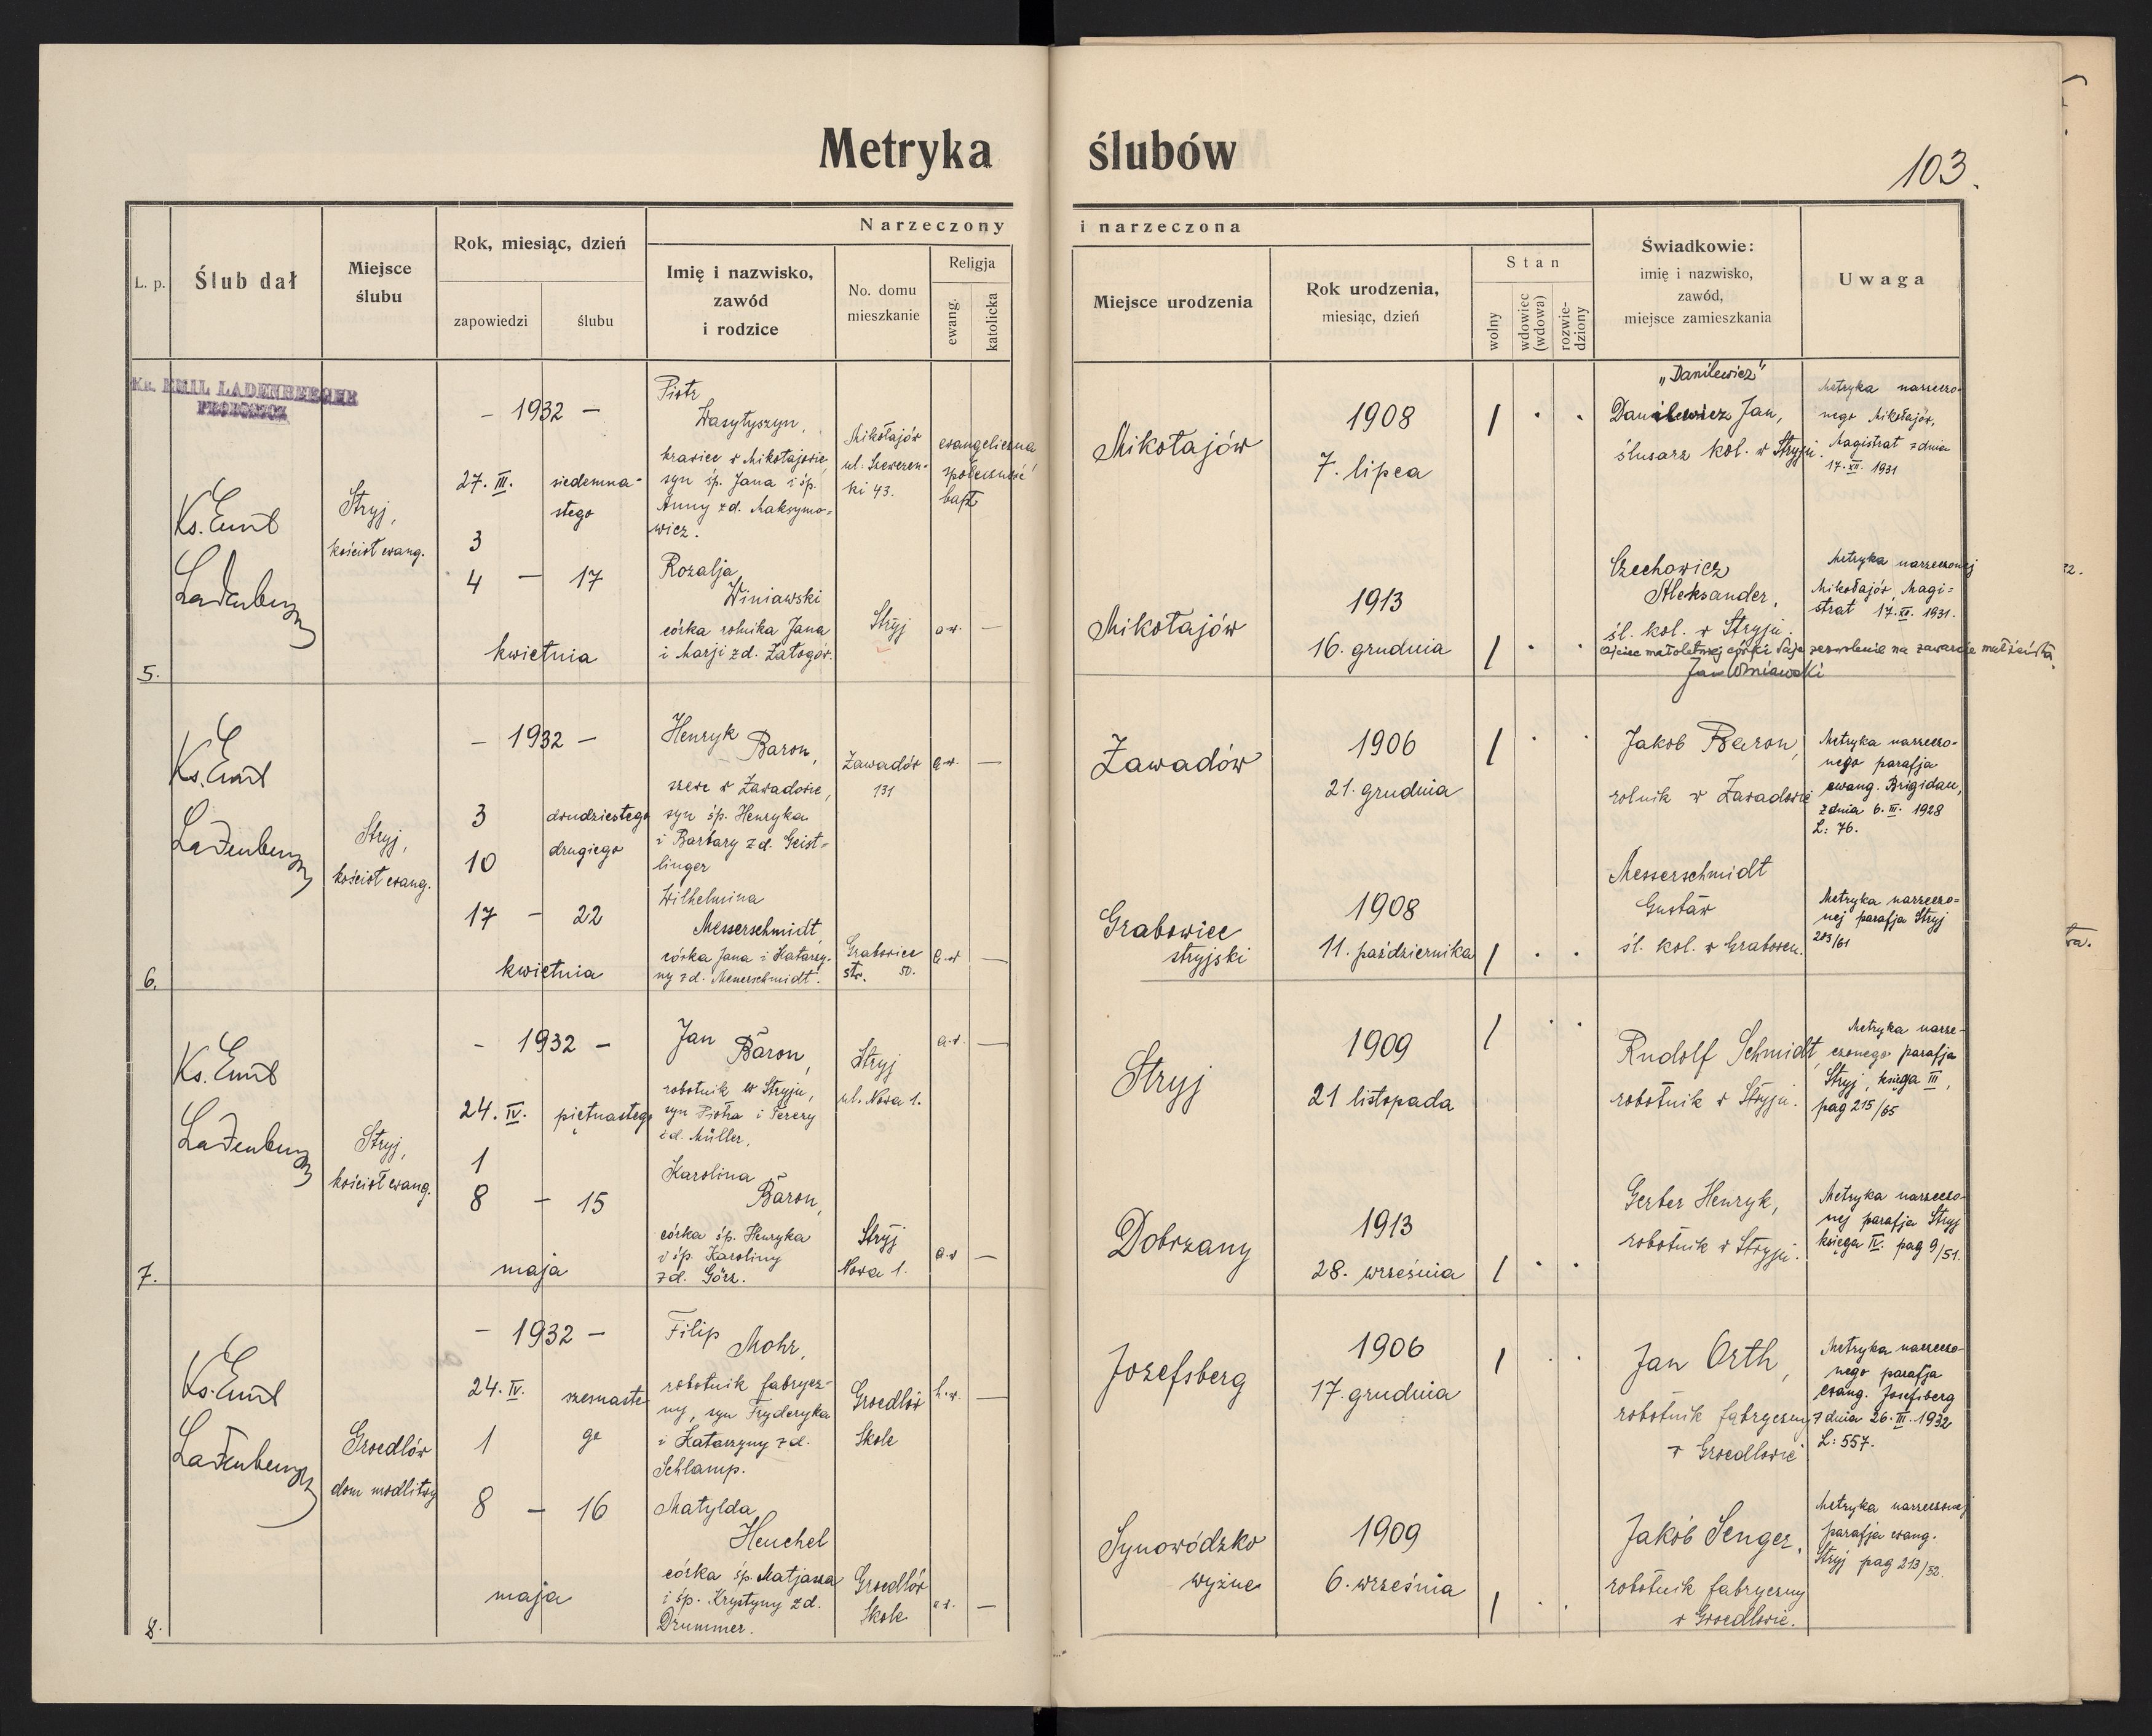 Metryka ślubów
103.
Narzeczony i narzeczona
L. p.
Ślub dał
Miejsce
ślubu
Rok, miesiąc, dzień
zapowiedzi
ślubu
Imię i nazwisko,
zawód
i rodzice
No. domu
mieszkanie
Religja
ewang.
katolicka
Miejsce urodzenia
Rok urodzenia,
miesiąc, dzień
Stan
wolny
wdowiec
(wdowa)
rozwie-
dziony
Świadkowie:
imię i nazwisko,
zawód,
miejsce zamieszkania
Uwaga
Ks. EMIL LADENBERGER
PROBOSZCZ
5.
Ks. Emil
Ladenberger
Stryj,
kościoł ewang.
- 1932 -
27. III.
3
4 - 17
siedemna-
stego
kwietnia
Piotr
Wasyłyszyn,
krawiec w Mikołajowie,
syn śp. Jana i śp.
Anny zd. Maksymo-
wicz.
Mikołajów
ul. Szewczen-
ki 43.
ewangeliczna
społeczność
bapt.
Mikołajów
1908
7. lipca
"Danilewicz"
Danilewicz Jan,
ślusarz kol. w Stryju.
Metryka narzeczo-
nego Mikołajów,
Magistrat z dnia
17. XII. 1931
Rozalja
Winiawski
córka rolnika Jana
i Marji zd. Załogor.
Stryj
a.w. -
Mikołajów
1913
16. grudnia
Czechowicz
Aleksander,
śl. kol. w Stryju.
Metryka narzeczonej
Mikołajów, Magi-
strat 17. XI. 1931.
Ojciec małoletniej córki daje zezwolenie na zawarcie małżeństwa
Jan Winiawski
6.
Ks. Emil
Ladenberger
Stryj,
kościoł ewang.
- 1932 -
3
10
17 - 22
dwudziestego
drugiego
kwietnia
Henryk
Baron,
szewc w Zawadowie,
syn śp. Henryka
i Barbary zd. Geist-
linger
Zawadów
131
a.w. -
Zawadów
1906
21. grudnia
Jakob Baron,
rolnik w Zawadowie
Metryka narzeczo-
nego parafja
ewang. Brigidau,
z dnia 6. III. 1928
L: 76.
Wilhelmina
Messerschmidt,
córka Jana i Katarzy-
ny zd. Messerschmidt.
Grabowiec
str. 50.
a.w. -
Grabowiec
stryjski
1908
11. października
Messerschmidt
Gustaw
śl. kol. w Grabowcu.
Metryka narzeczo-
nej parafja Stryj
203/61
7.
Ks. Emil
Ladenberger
Stryj,
kościoł ewang.
- 1932 -
24. IV.
1
8 - 15
piętnastego
maja
Jan
Baron,
robotnik w Stryju,
syn Piotra i Terezy
zd. Müller.
Stryj
ul. Nowa 1.
a.w. -
Stryj
1909
21 listopada
Rudolf Schmidt,
robotnik w Stryju.
Metryka narze-
czonego parafja
Stryj, księga III,
pag 215/65
Karolina
Baron,
córka śp. Henryka
i śp. Karoliny
zd. Görz.
Stryj
Nowa 1.
a.w -
Dobrzany
1913
28. września
Gerber Henryk,
robotnik w Stryju.
Metryka narzeczo-
nej parafja Stryj
księga IV. pag 9/51.
8.
Ks. Emil
Ladenberger
Groedlów
dom modlitwy
- 1932 -
24. IV.
1
8 - 16
szesnaste
go
maja
Filip
Mohr,
robotnik fabrycz-
ny, syn Fryderyka
i Katarzyny zd.
Schlamp.
Groedlów
Skole
h.w. -
Josefsberg
1906
17. grudnia
Jan Orth,
robotnik fabryczny
w Groedlowie
Metryka narzeczo-
nego parafja
ewang. Josefsberg
z dnia 26. II. 1932
L: 557.
Matylda
Heuchel
córka śp. Matjasza
i śp. Krystyny zd.
Drummer.
Groedlów
Skole
a.w. -
Synowódzko
wyżne
1909
6. września
Jakób Senger,
robotnik fabryczny
w Groedlowie.
Metryka narzeczonej
parafja ewang.
Stryj pag 213/52.